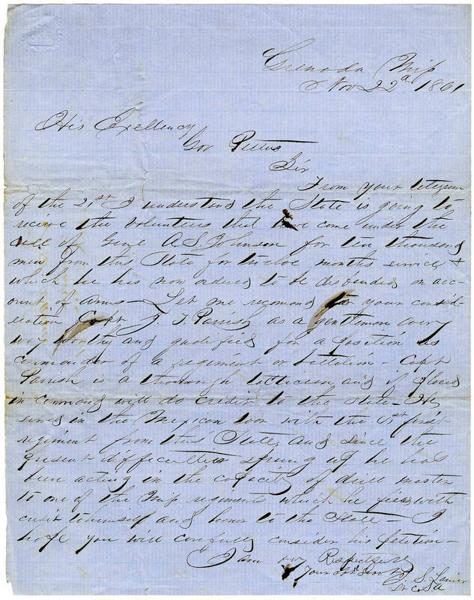 Grenada Mip
Nov 22d 1861
His Excellency
Gov Pettus
Sir
From your telegram
of the 21st I understand the State is going to
receive the volunteers that have come under the
call of Genl A S Johnson for ten thousand
men from this State for twelve months service &
which he has now orders to be disbanded on acc-
ount of arms – Let me recommend to your consid-
eration Capt J T Parrish as a gentleman every
way worthy and qualified for a position as
commander of a regiment or battalion Capt
Parrish is a thorough tactician and if placed
in command will do credit to the State – He
served in the Mexican war with the first
regiment from this State and since the
present difficulties sprung up he has
been acting in the capacity of drill master
to one of the Mip regiments which he fills with
credit to himself and honor to the State – I
hope you will carefully consider his petition –
I am very Respectfully
Your obt Servt
S. Lanier